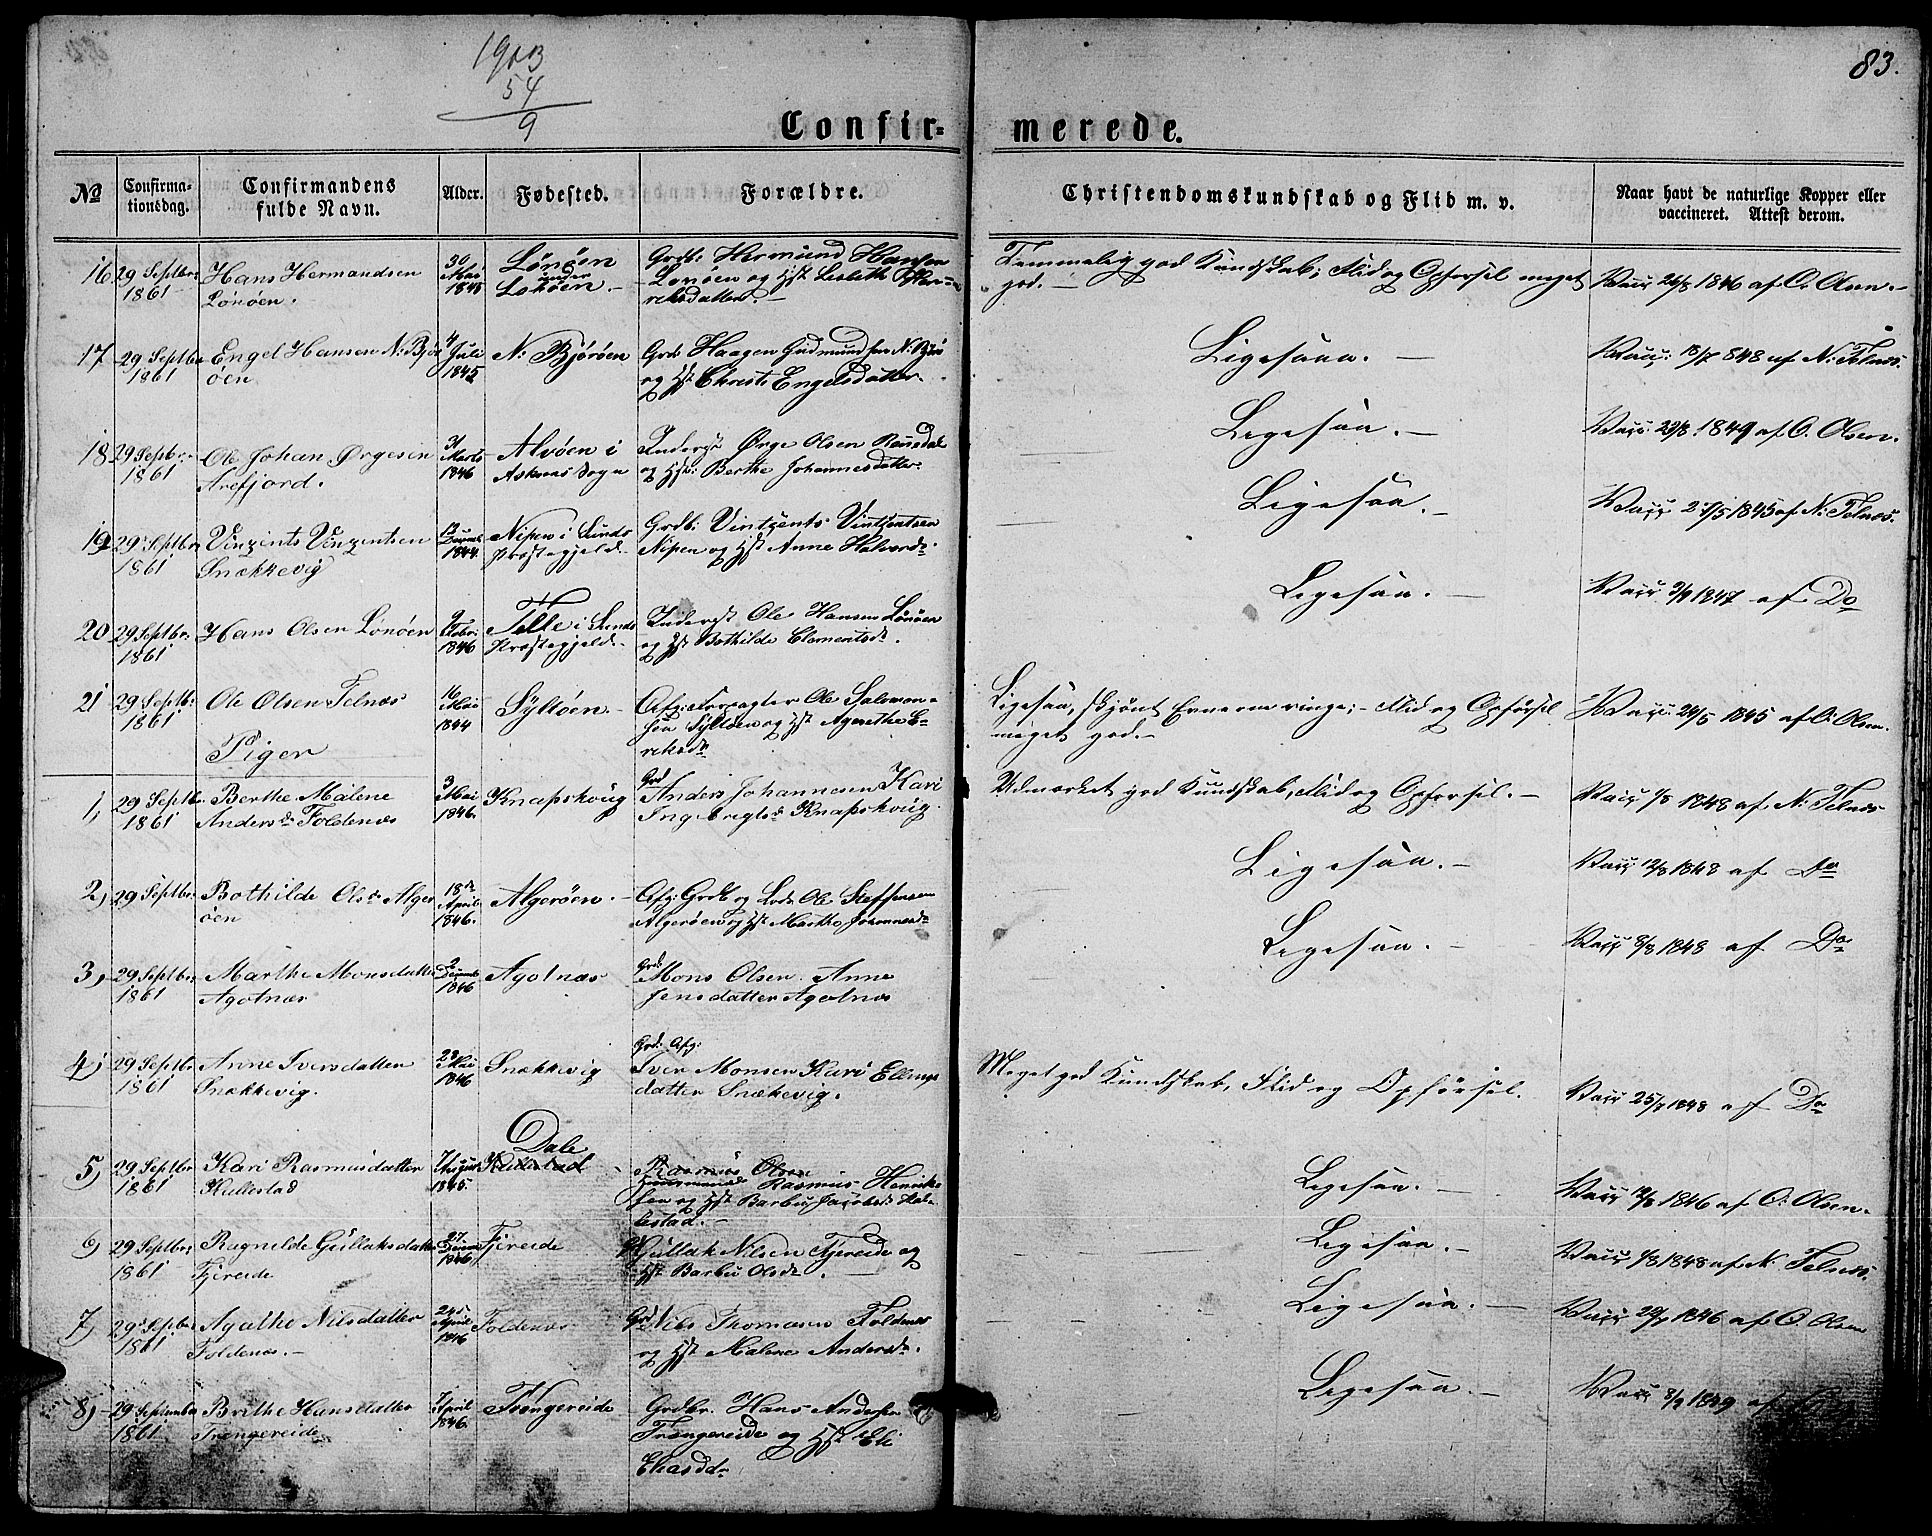 1903
54
9
83.
Confir-
merede.
No
Confirma-
tionsdag.
Confirmandens
fulde Navn.
Alder.
Fødested.
Forældre.
Christendomskundskab og Flid m. v.
Naar havt de naturlige Kopper eller
vaccineret. Attest derom.
16 29 Septbr: 1861
Hans Hermandsen
Lonöen.
30 Mai 1845
Lönöen
under
Lonöen. -
Grdb: Hermund Hansen
Lonöen og Hst Lisbeth
riksdatter. -
Temmelig god Kundskab; Flid og Opförsel meget
god. -
Vacc 26/8 1846 af O. Olsen. -
17 29 Septbr 1861
Engel Hansen N: Bjor
öen
4 Juli 1845
N: Björöen
Grdb Haagen Gudmundsen N: Bjor
og Hst Christi Engelsdatter.
Ligesaa. -
Vacc: 18/7 848 af N: Telnæs.
18 29 Septbr. 1861
Ole Johan Ørgesen
Arefjord.
31 Marts 1846
Alvöen i
Askøens Sogn
Inderst Ørge Olsen
og Hst: Berthe Johannesdatter.
Ligesaa. -
Vacc: 22/8 1849 af O. Olsen.
19 29 Septbr 1861
Vinzents Vinzentsen
Snekkevig
12 Decemb 1844
Nipen i Sunds
Præstegjeld. -
Grdb: Vintzents Vintzentsen
Nipen og Hst Anne Halvorsdr.
Ligesaa. -
af N: Telnæs.
20 29 Septbr. 1861
Hans Olsen Lönöen
9 Febr: 1846
Telle i Sunds
Præstegjeld. -
Inderst Ole Hansen Lönöen
og Hst Bothilde Clementsdr.
Ligesaa. -
Vacc 3/9 1847 af Do
21 29 Septbr: 1861
Ole Olsen Telnæs
16 Mai 1844
Syltöen -
Afg: Forpagter Ole Salomon-
sen Syltöen og Hst Agnethe E-
riksdr
Ligesaa, skjönt Evnerne ringe; - Flid og Opförsel
meget god. -
Vacc: 24/5 1845 af O: Olsen.
Piger
1, 29 Septbr. 1861
Berthe Malene
Andersdr Foldenæs
3 Mai 1846.
Knapskoug
Grd
Anders Johannesen Kari
Ingebrigtsdr Knapskoug.
Udmærket god Kundskab, Flid og Opforsel. -
Vacc 1/8 1848 af N: Telnæs
2, 29 Septbr.
Bothilde Olsdr Alger
öen
18de April 1846.
Algeröen. -
Afg: Grdb og Ole Steffensen
Algeröen og Hst Marthe Johannesdr
Ligesaa. -
Vacc: 12/8 1848 af Do
3, 29 Septbr: 1861
Marthe Monsdatter
Agotnæs
2 Decemb 1846
Agotnæs
Grd:
Mons Olsen. Anne
Jensdatter Agotnæs
Ligesaa. -
Vacc 8/8 1848 af Do
4, 29 Septbr 1861
Anne Iversdatter
Snækkevig.
23 Mai 1846
Snækkevig
Grd: Afg:
Iver Monsen Kari Ellings
datter Snækevig.
Meget god Kundskab, Flid og Opförsel.
Vacc 25/7 1848 af Do
5, 29 Septbr 1861
Kari Rasmusdatter
Kullestad
7 August 1845.
Dale
Kullestad
Rasmus Olsen
Huusmand Rasmus Henrik-
sen og Hst Barbu Jacobsdr Kul-
lestad. -
Ligesaa. -
Vacc 12/8 1846 af O: Olsen.
6) 29 Septbr: 1861
Ragnilde Gullaksdatter
Fjereide
27 Decemb 1846
Fjereide
Gullak Nilsen Fjereide og
Hst Barbu Olsdr. -
Ligesaa. -
Vacc 1/8 1848 af N: Telnæs.
7) 29 Septbr 1861
Agathe Nilsdatter
Foldenæs. -
24 April 1846
Foldenæs
Grd Nils Thomasen Foldnæs
og Hst Malene Andersdr.
Ligesaa. -
Vacc 1846 af O. Olsen
8) 29 September 1861
Brithe Hansdatter
Trengereide
7 April 1846.
Trengereide
Grdbr. Hans Andersen
Trengereide og Hst Eli
Eliasdr
Ligesaa -
Vacc 8/9 1849 af